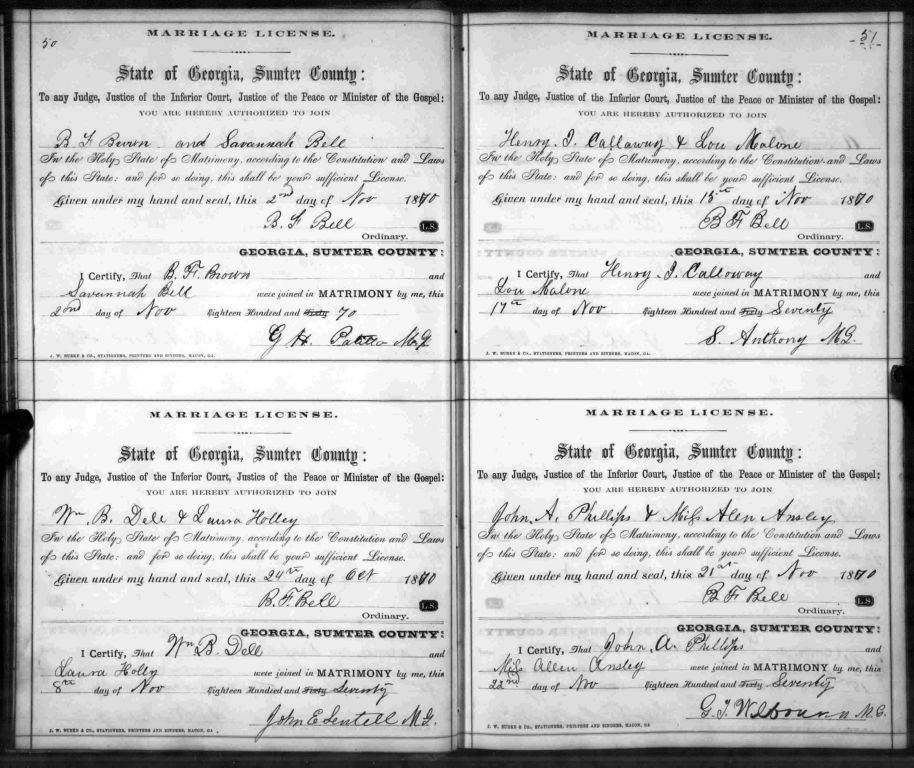 50
MARRIAGE LICENSE.
State of Georgia, Sumter County:
To any Judge, Justice of the Inferior Court, Justice of the Peace or Minister of the Gospel:
YOU ARE HEREBY AUTHORIZED TO JOIN
B F Brown and Savannah Bell
In the Holy State of Matrimony, according to the Constitution and Laws
of this State: and for so doing, this shall be your sufficient License.
Given under my hand and seal, this 2nd day of Nov 1870
B. F Bell L.S.
Ordinary.
GEORGIA, SUMTER COUNTY:
I Certify, That B. F. Brown and
Savannah Bell were joined in MATRIMONY by me, this
2nd day of Nov Eighteen Hundred and Sixty 70
G H. M.G
J. W. BURKE & CO., STATIONERS, PRINTERS AND BINDERS, MACON, GA.
MARRIAGE LICENSE.
State of Georgia, Sumter County:
To any Judge, Justice of the Inferior Court, Justice of the Peace or Minister of the Gospel:
YOU ARE HEREBY AUTHORIZED TO JOIN
Wm B. Dell & Laura Holley
In the Holy State of Matrimony, according to the Constitution and Laws
of this State: and for so doing, this shall be your sufficient License.
Given under my hand and seal, this 24th day of Oct 1870
B. F. Bell L.S.
Ordinary.
GEORGIA, SUMTER COUNTY:
I Certify, That Wm B. Dell and
Laura Holly were joined in MATRIMONY by me, this
8th day of Nov Eighteen Hundred and Sixty Seventy
John E Sentell M.G.
J. W. BURKE & CO., STATIONERS, PRINTERS AND BINDERS, MACON, GA.
51
MARRIAGE LICENSE.
State of Georgia, Sumter County:
To any Judge, Justice of the Inferior Court, Justice of the Peace or Minister of the Gospel:
YOU ARE HEREBY AUTHORIZED TO JOIN
Henry. J. Callaway & Lou Malone
In the Holy State of Matrimony, according to the Constitution and Laws
of this State: and for so doing, this shall be your sufficient License.
Given under my hand and seal, this 15th day of Nov 1870
B F Bell L.S.
Ordinary.
GEORGIA, SUMTER COUNTY:
I Certify, That Henry. J. Calloway and
Lou Malone were joined in MATRIMONY by me, this
17th day of Nov Eighteen Hundred and Sixty Seventy
S. Anthony M.G.
J. W. BURKE & CO., STATIONERS, PRINTERS AND BINDERS, MACON, GA.
MARRIAGE LICENSE.
State of Georgia, Sumter County:
To any Judge, Justice of the Inferior Court, Justice of the Peace or Minister of the Gospel:
YOU ARE HEREBY AUTHORIZED TO JOIN
John, A. Phillips & Miss Alen Ansley
In the Holy State of Matrimony, according to the Constitution and Laws
of this State: and for so doing, this shall be your sufficient License.
Given under my hand and seal, this 21st day of Nov 1870
B F Bell L.S.
Ordinary.
GEORGIA, SUMTER COUNTY:
I Certify, That John, A. Phillips and
Miss Allen Ansley were joined in MATRIMONY by me, this
22nd day of Nov Eighteen Hundred and Sixty Seventy
G. T. Wilbourn M.G.
J. W. BURKE & CO., STATIONERS, PRINTERS AND BINDERS, MACON, GA